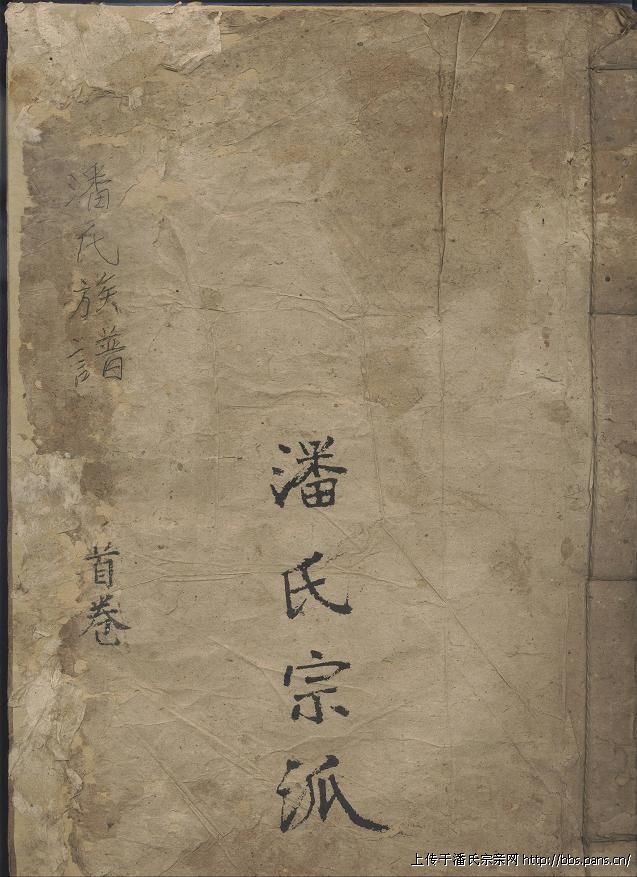 潘氏宗派
潘氏族譜
首卷
上传于潘氏宗亲网 http://bbs.pans.cn/